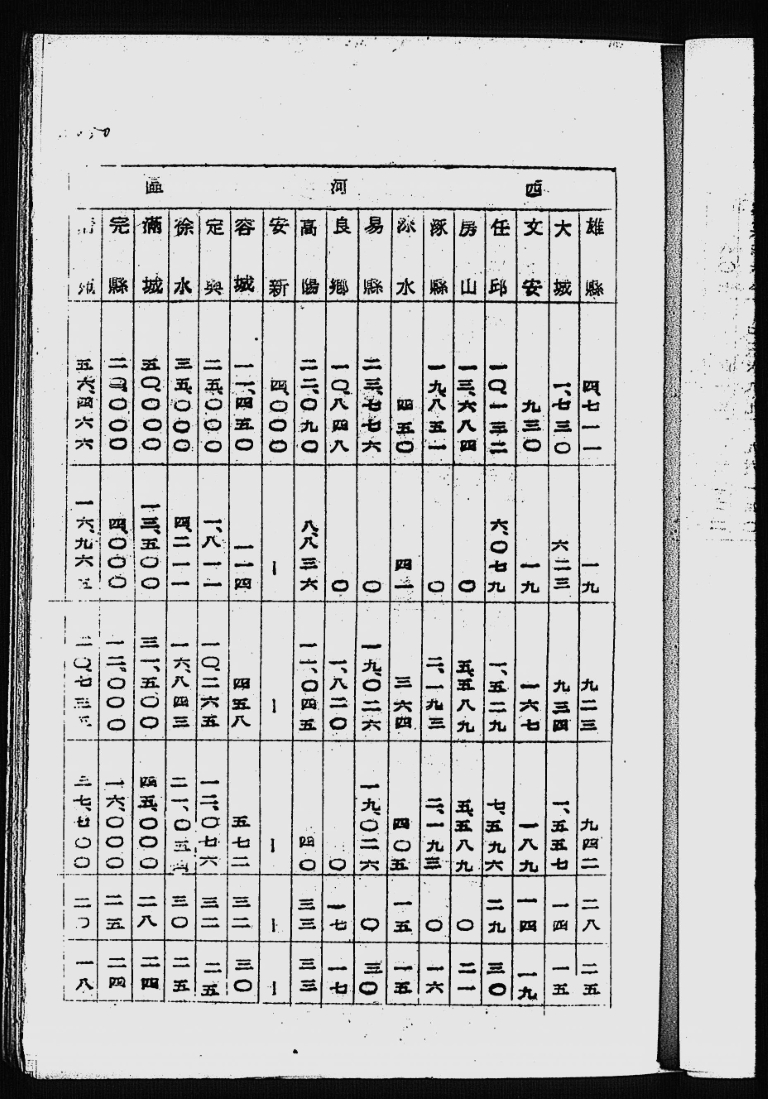 西河區
雄縣 四、七一一 一九 九二三 九四二 二八 二五
大城 一、七三〇 六二三 九三四 一、五五七 一四 一五
文安 九三〇 一九 一六七 一八九 一四 一九
任邱 一〇、一三二 六、〇七九 一、五二九 七、五九六 二九 三〇
房山 一三、六八四 〇 五、五八九 五、五八九 〇 二一
涿縣 一九、八五一 〇 二、一九三 二、一九三 〇 一六
淶水 四五〇 四一 三六四 四〇五 一五 一五
易縣 二三、七七六 〇 一九、〇二六 一九、〇二六 〇 三〇
良鄉 一〇、八四八 〇 一、八二〇 〇 一七 一七
高陽 二二、〇九〇 八、八三六 一一、〇四五 四〇 三三 三三
安新 四、〇〇〇 — — — — —
容城 一一、四五〇 一一四 四五八 五七二 三二 三〇
定興 二五、〇〇〇 一、八一一 一〇、二六五 一二、〇七六 三二 二五
徐水 三五、〇〇〇 四、二一一 一六、八四三 二一、〇五四 三〇 二五
滿城 五〇、〇〇〇 一三、五〇〇 三一、五〇〇 四五、〇〇〇 二八 二四
完縣 二〇、〇〇〇 四、〇〇〇 一二、〇〇〇 一六、〇〇〇 二五 二四
五六、四六六 一六、九六五 二〇、七三五 三七、七〇〇 二〇 一八